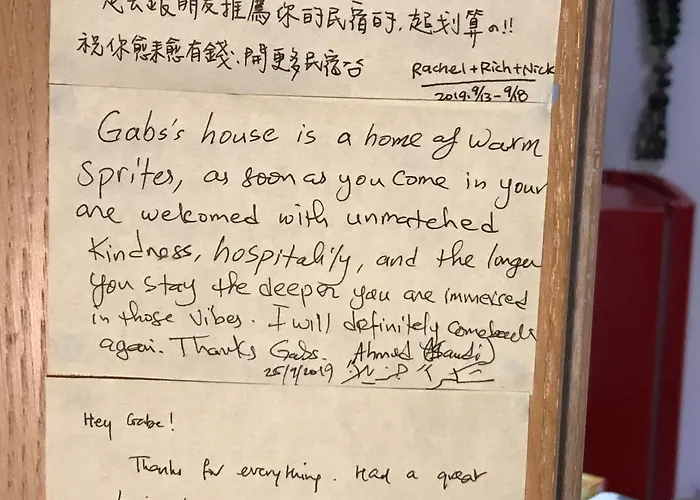 推薦你的民宿的, 超划算の!!
祝你愈來愈有錢, 開更多民宿谷
Rachel+Rich+Nick
2019.9/3-9/8
Gabs's house is a home of warm
Sprites, as soon as you come in your
are welcomed with unmatched
kindness, hospitality, and the longer
you stay the deeper you are immersed
in those vibes. I will definitely comeback
again. Thanks Gabs. Ahmed (Saudi)
25/9/2019
Hey Gabe!
Thanks for everything. Had a great